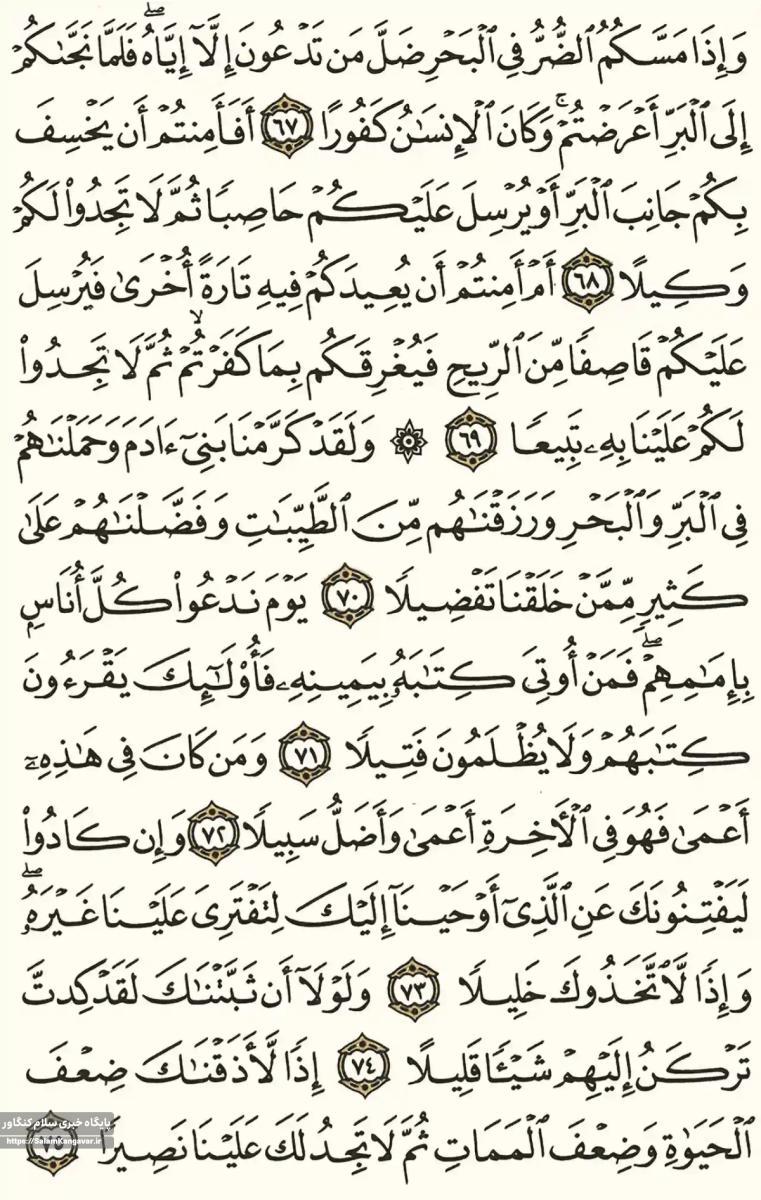 وَإِذَا مَسَّكُمُ ٱلضُّرُّ فِى ٱلْبَحْرِ ضَلَّ مَن تَدْعُونَ إِلَّآ إِيَّاهُ ۖ فَلَمَّا نَجَّىٰكُمْ
إِلَى ٱلْبَرِّ أَعْرَضْتُمْ ۚ وَكَانَ ٱلْإِنسَٰنُ كَفُورًا ٦٧ أَفَأَمِنتُمْ أَن يَخْسِفَ
بِكُمْ جَانِبَ ٱلْبَرِّ أَوْ يُرْسِلَ عَلَيْكُمْ حَاصِبًا ثُمَّ لَا تَجِدُوا۟ لَكُمْ
وَكِيلًا ٦٨ أَمْ أَمِنتُمْ أَن يُعِيدَكُمْ فِيهِ تَارَةً أُخْرَىٰ فَيُرْسِلَ
عَلَيْكُمْ قَاصِفًا مِّنَ ٱلرِّيحِ فَيُغْرِقَكُم بِمَا كَفَرْتُمْ ۙ ثُمَّ لَا تَجِدُوا۟
لَكُمْ عَلَيْنَا بِهِۦ تَبِيعًا ٦٩ ۞ وَلَقَدْ كَرَّمْنَا بَنِىٓ ءَادَمَ وَحَمَلْنَٰهُمْ
فِى ٱلْبَرِّ وَٱلْبَحْرِ وَرَزَقْنَٰهُم مِّنَ ٱلطَّيِّبَٰتِ وَفَضَّلْنَٰهُمْ عَلَىٰ
كَثِيرٍ مِّمَّنْ خَلَقْنَا تَفْضِيلًا ٧٠ يَوْمَ نَدْعُوا۟ كُلَّ أُنَاسٍۭ
بِإِمَٰمِهِمْ ۖ فَمَنْ أُوتِىَ كِتَٰبَهُۥ بِيَمِينِهِۦ فَأُو۟لَٰٓئِكَ يَقْرَءُونَ
كِتَٰبَهُمْ وَلَا يُظْلَمُونَ فَتِيلًا ٧١ وَمَن كَانَ فِى هَٰذِهِۦٓ
أَعْمَىٰ فَهُوَ فِى ٱلْأَخِرَةِ أَعْمَىٰ وَأَضَلُّ سَبِيلًا ٧٢ وَإِن كَادُوا۟
لَيَفْتِنُونَكَ عَنِ ٱلَّذِىٓ أَوْحَيْنَآ إِلَيْكَ لِتَفْتَرِىَ عَلَيْنَا غَيْرَهُۥ ۖ
وَإِذًا لَّٱتَّخَذُوكَ خَلِيلًا ٧٣ وَلَوْلَآ أَن ثَبَّتْنَٰكَ لَقَدْ كِدتَّ
تَرْكَنُ إِلَيْهِمْ شَيْـًٔا قَلِيلًا ٧٤ إِذًا لَّأَذَقْنَٰكَ ضِعْفَ
ٱلْحَيَوٰةِ وَضِعْفَ ٱلْمَمَاتِ ثُمَّ لَا تَجِدُ لَكَ عَلَيْنَا نَصِيرًا ٧٥
پایگاه خبری سلام کنگاور
https://SalamKangavar.ir